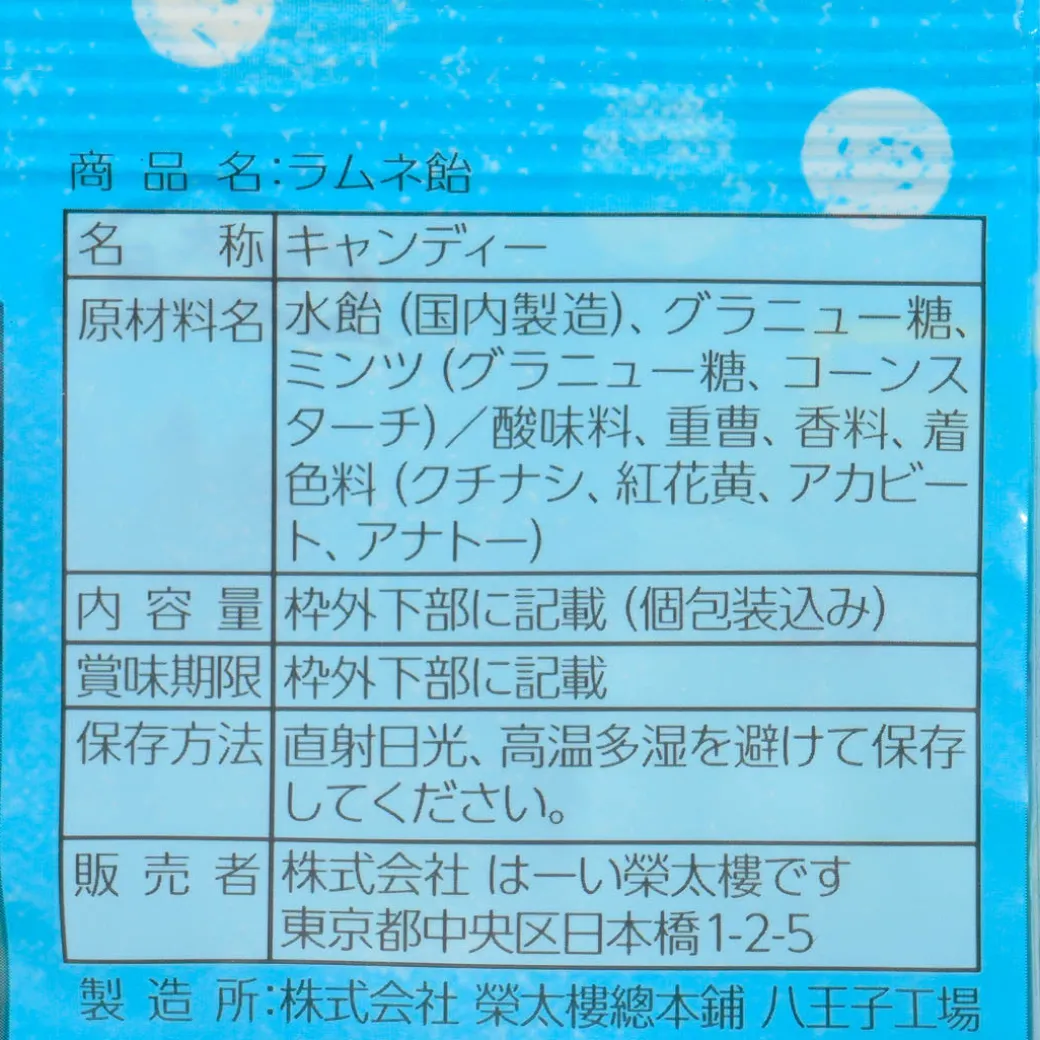 商品名:ラムネ飴
名称 キャンディー
原材料名 水飴(国内製造)、グラニュー糖、
ミンツ(グラニュー糖、コーンス
ターチ)/酸味料、重曹、香料、着
色料(クチナシ、紅花黄、アカビー
ト、アナトー)
内容量 枠外下部に記載(個包装込み)
賞味期限 枠外下部に記載
保存方法 直射日光、高温多湿を避けて保存
してください。
販売者 株式会社 はーい榮太樓です
東京都中央区日本橋1-2-5
製造所:株式会社 榮太樓總本鋪 八王子工場